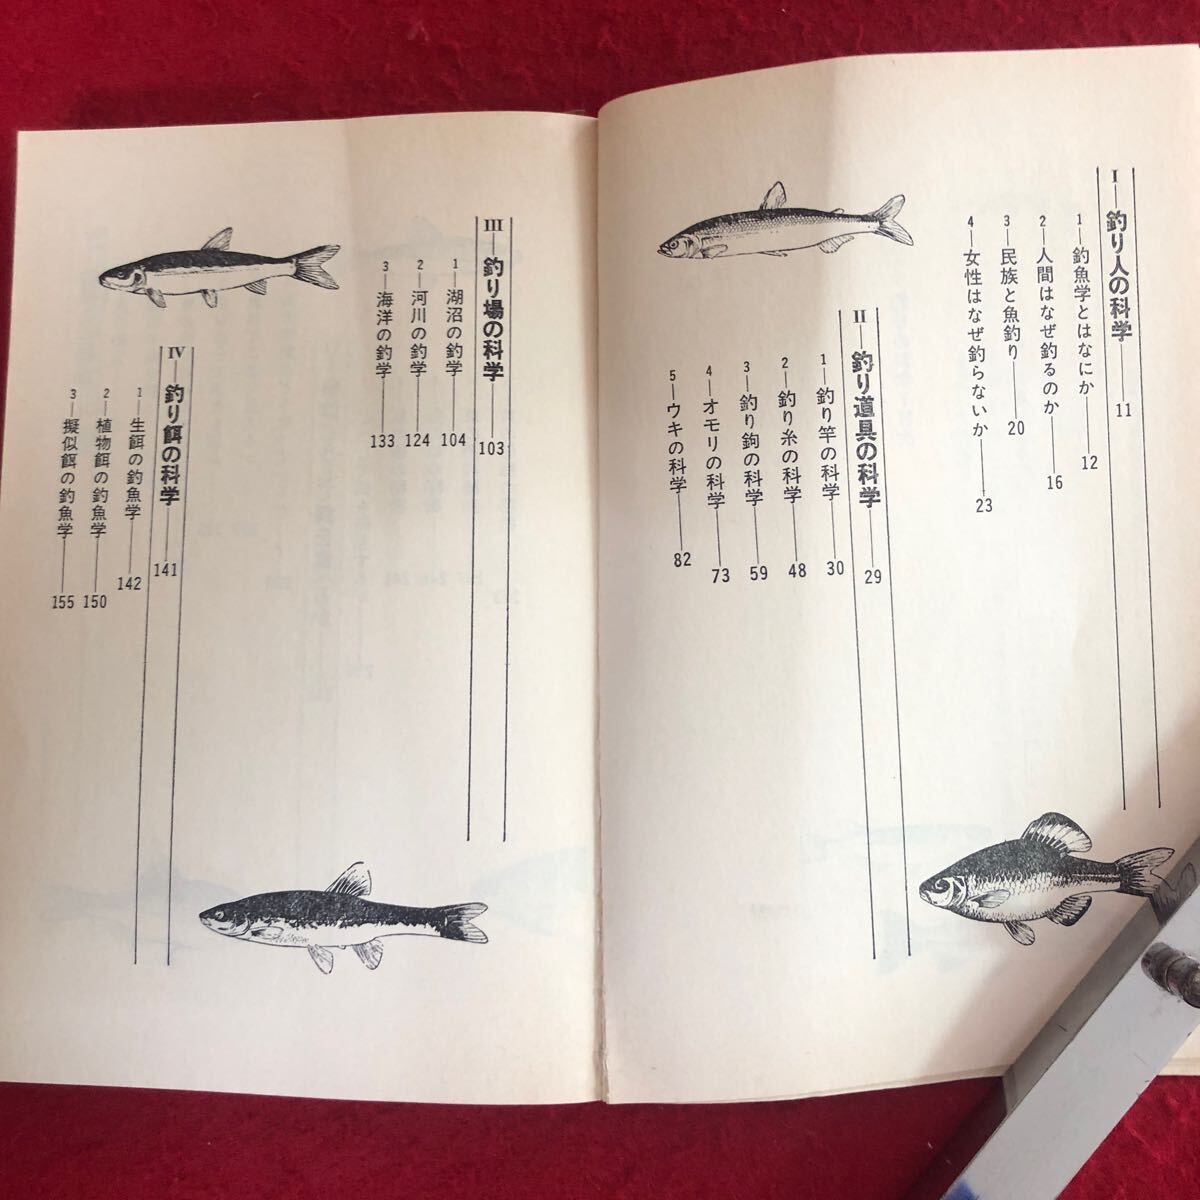 I—釣り人の科学—11
1—釣魚学とはなにか—12
2—人間はなぜ釣るのか—16
3—民族と魚釣り—20
4—女性はなぜ釣らないか—23
II—釣り道具の科学—29
1—釣り竿の科学—30
2—釣り糸の科学—48
3—釣り鉤の科学—59
4—オモリの科学—73
5—ウキの科学—82
III—釣り場の科学—103
1—湖沼の釣学—104
2—河川の釣学—124
3—海洋の釣学—133
IV—釣り餌の科学—141
1—生餌の釣魚学—142
2—植物餌の釣魚学—150
3—擬似餌の釣魚学—155